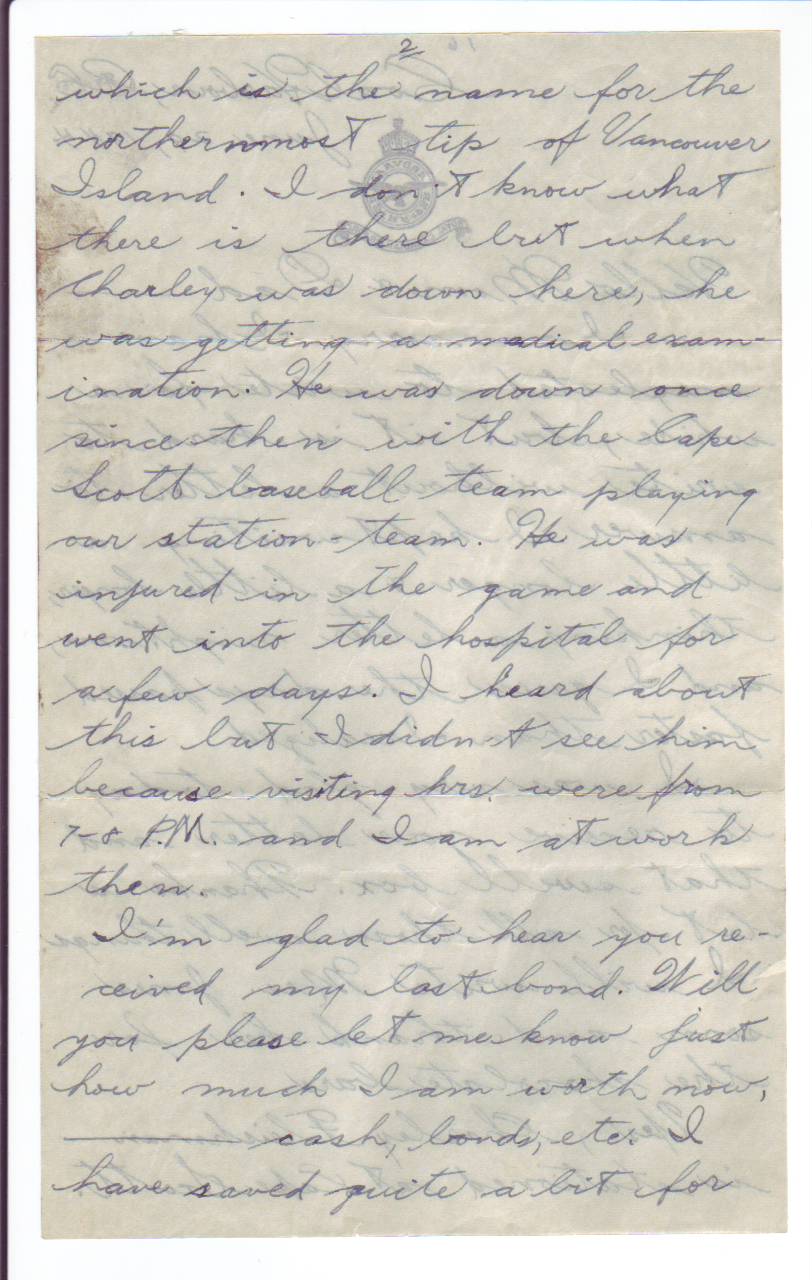 2
which is the name for the
northernmost tip of Vancouver
Island. I don't know what
there is there but when
Charley was down here, he
was getting a medical exam-
ination. He was down once
since then with the Cape
Scott baseball team playing
our station-team. He was
injured in the game and
went into the hospital for
a few days. I heard about
this but I didn't see him
because visiting hrs. were from
7-8 P.M. and I am at work
then.
I'm glad to hear you re-
ceived my last bond. Will
you please let me know just
how much I am worth now,
cash, bonds, etc. I
have saved quite a bit for